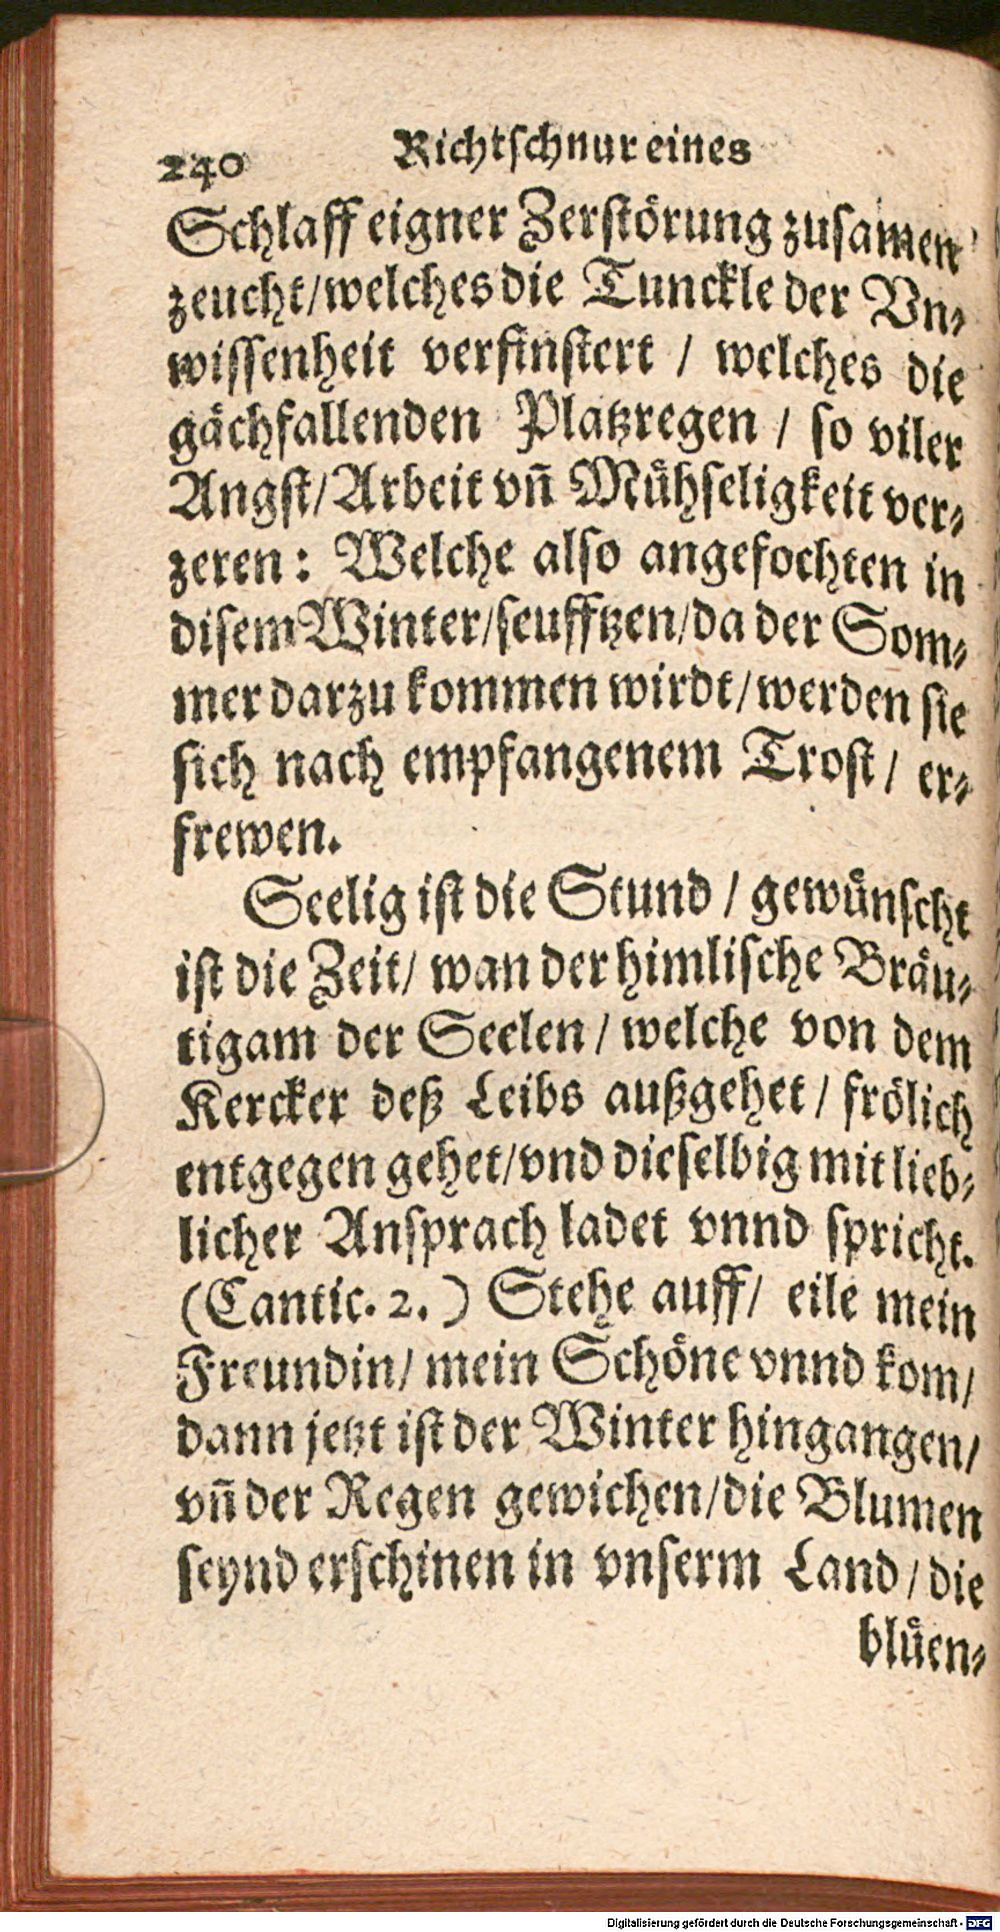 240 Richtschnur eines
Schlaff eigner Zerstörung zusamen
zeucht/welches die Tunckle der Vn-
wissenheit verfinstert / welches die
gächfallenden Platzregen / so viler
Angst/Arbeit vñ Mühseligkeit ver-
zeren: Welche also angefochten in
disem Winter/seufftzen/da der Som-
mer darzu kommen wirdt/werden sie
sich nach empfangenem Trost/ er-
frewen.
Seelig ist die Stund / gewünscht
ist die Zeit/ wan der himlische Bräu-
tigam der Seelen / welche von dem
Kercker deß Leibs außgehet / frölich
entgegen gehet/vnd dieselbig mit lieb-
licher Ansprach ladet vnnd spricht.
(Cantic. 2.) Stehe auff/ eile mein
Freundin/ mein Schöne vnnd kom/
dann jetzt ist der Winter hingangen/
vñ der Regen gewichen/die Blumen
seynd erschinen in vnserm Land/die
blüen-
Digitalisierung gefördert durch die Deutsche Forschungsgemeinschaft - DFG